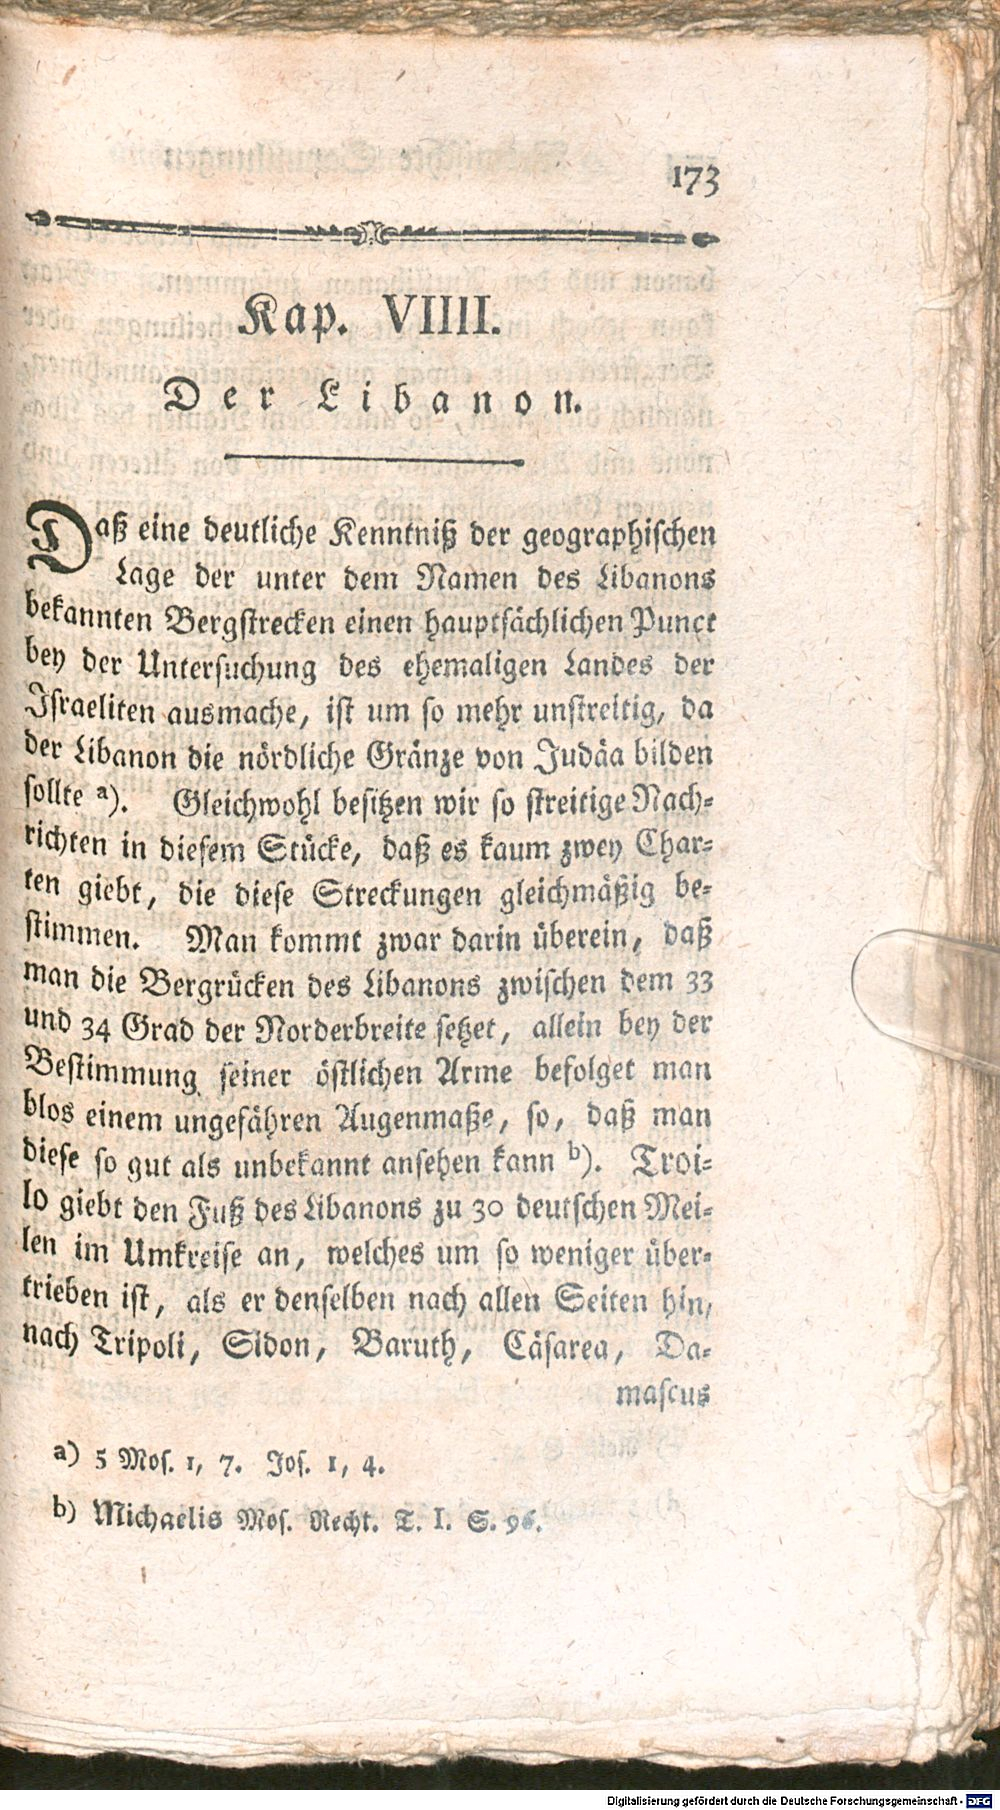 173
Kap. VIIII.
Der Libanon.
Daß eine deutliche Kenntniß der geographischen
Lage der unter dem Namen des Libanons
bekannten Bergstrecken einen hauptsächlichen Punct
bey der Untersuchung des ehemaligen Landes der
Israeliten ausmache, ist um so mehr unstreitig, da
der Libanon die nördliche Gränze von Judäa bilden
sollte a). Gleichwohl besitzen wir so streitige Nach-
richten in diesem Stücke, daß es kaum zwey Char-
ten giebt, die diese Streckungen gleichmäßig be-
stimmen. Man kommt zwar darin überein, daß
man die Bergrücken des Libanons zwischen dem 33
und 34 Grad der Norderbreite setzet, allein bey der
Bestimmung seiner östlichen Arme befolget man
blos einem ungefähren Augenmaße, so, daß man
diese so gut als unbekannt ansehen kann b). Troi-
lo giebt den Fuß des Libanons zu 30 deutschen Mei-
len im Umkreise an, welches um so weniger über-
trieben ist, als er denselben nach allen Seiten hin,
nach Tripoli, Sidon, Baruth, Cäsarea, Da-
mascus
a) 5 Mos. 1, 7. Jos. 1, 4.
b) Michaelis Mos. Recht. T. I. S. 96.
Digitalisierung gefördert durch die Deutsche Forschungsgemeinschaft - DFG